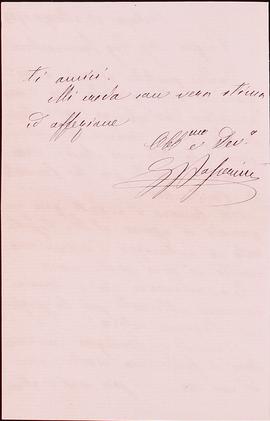 ti amici.
Mi creda con vera stima
ed affezione
Obb.mo e Dev.o